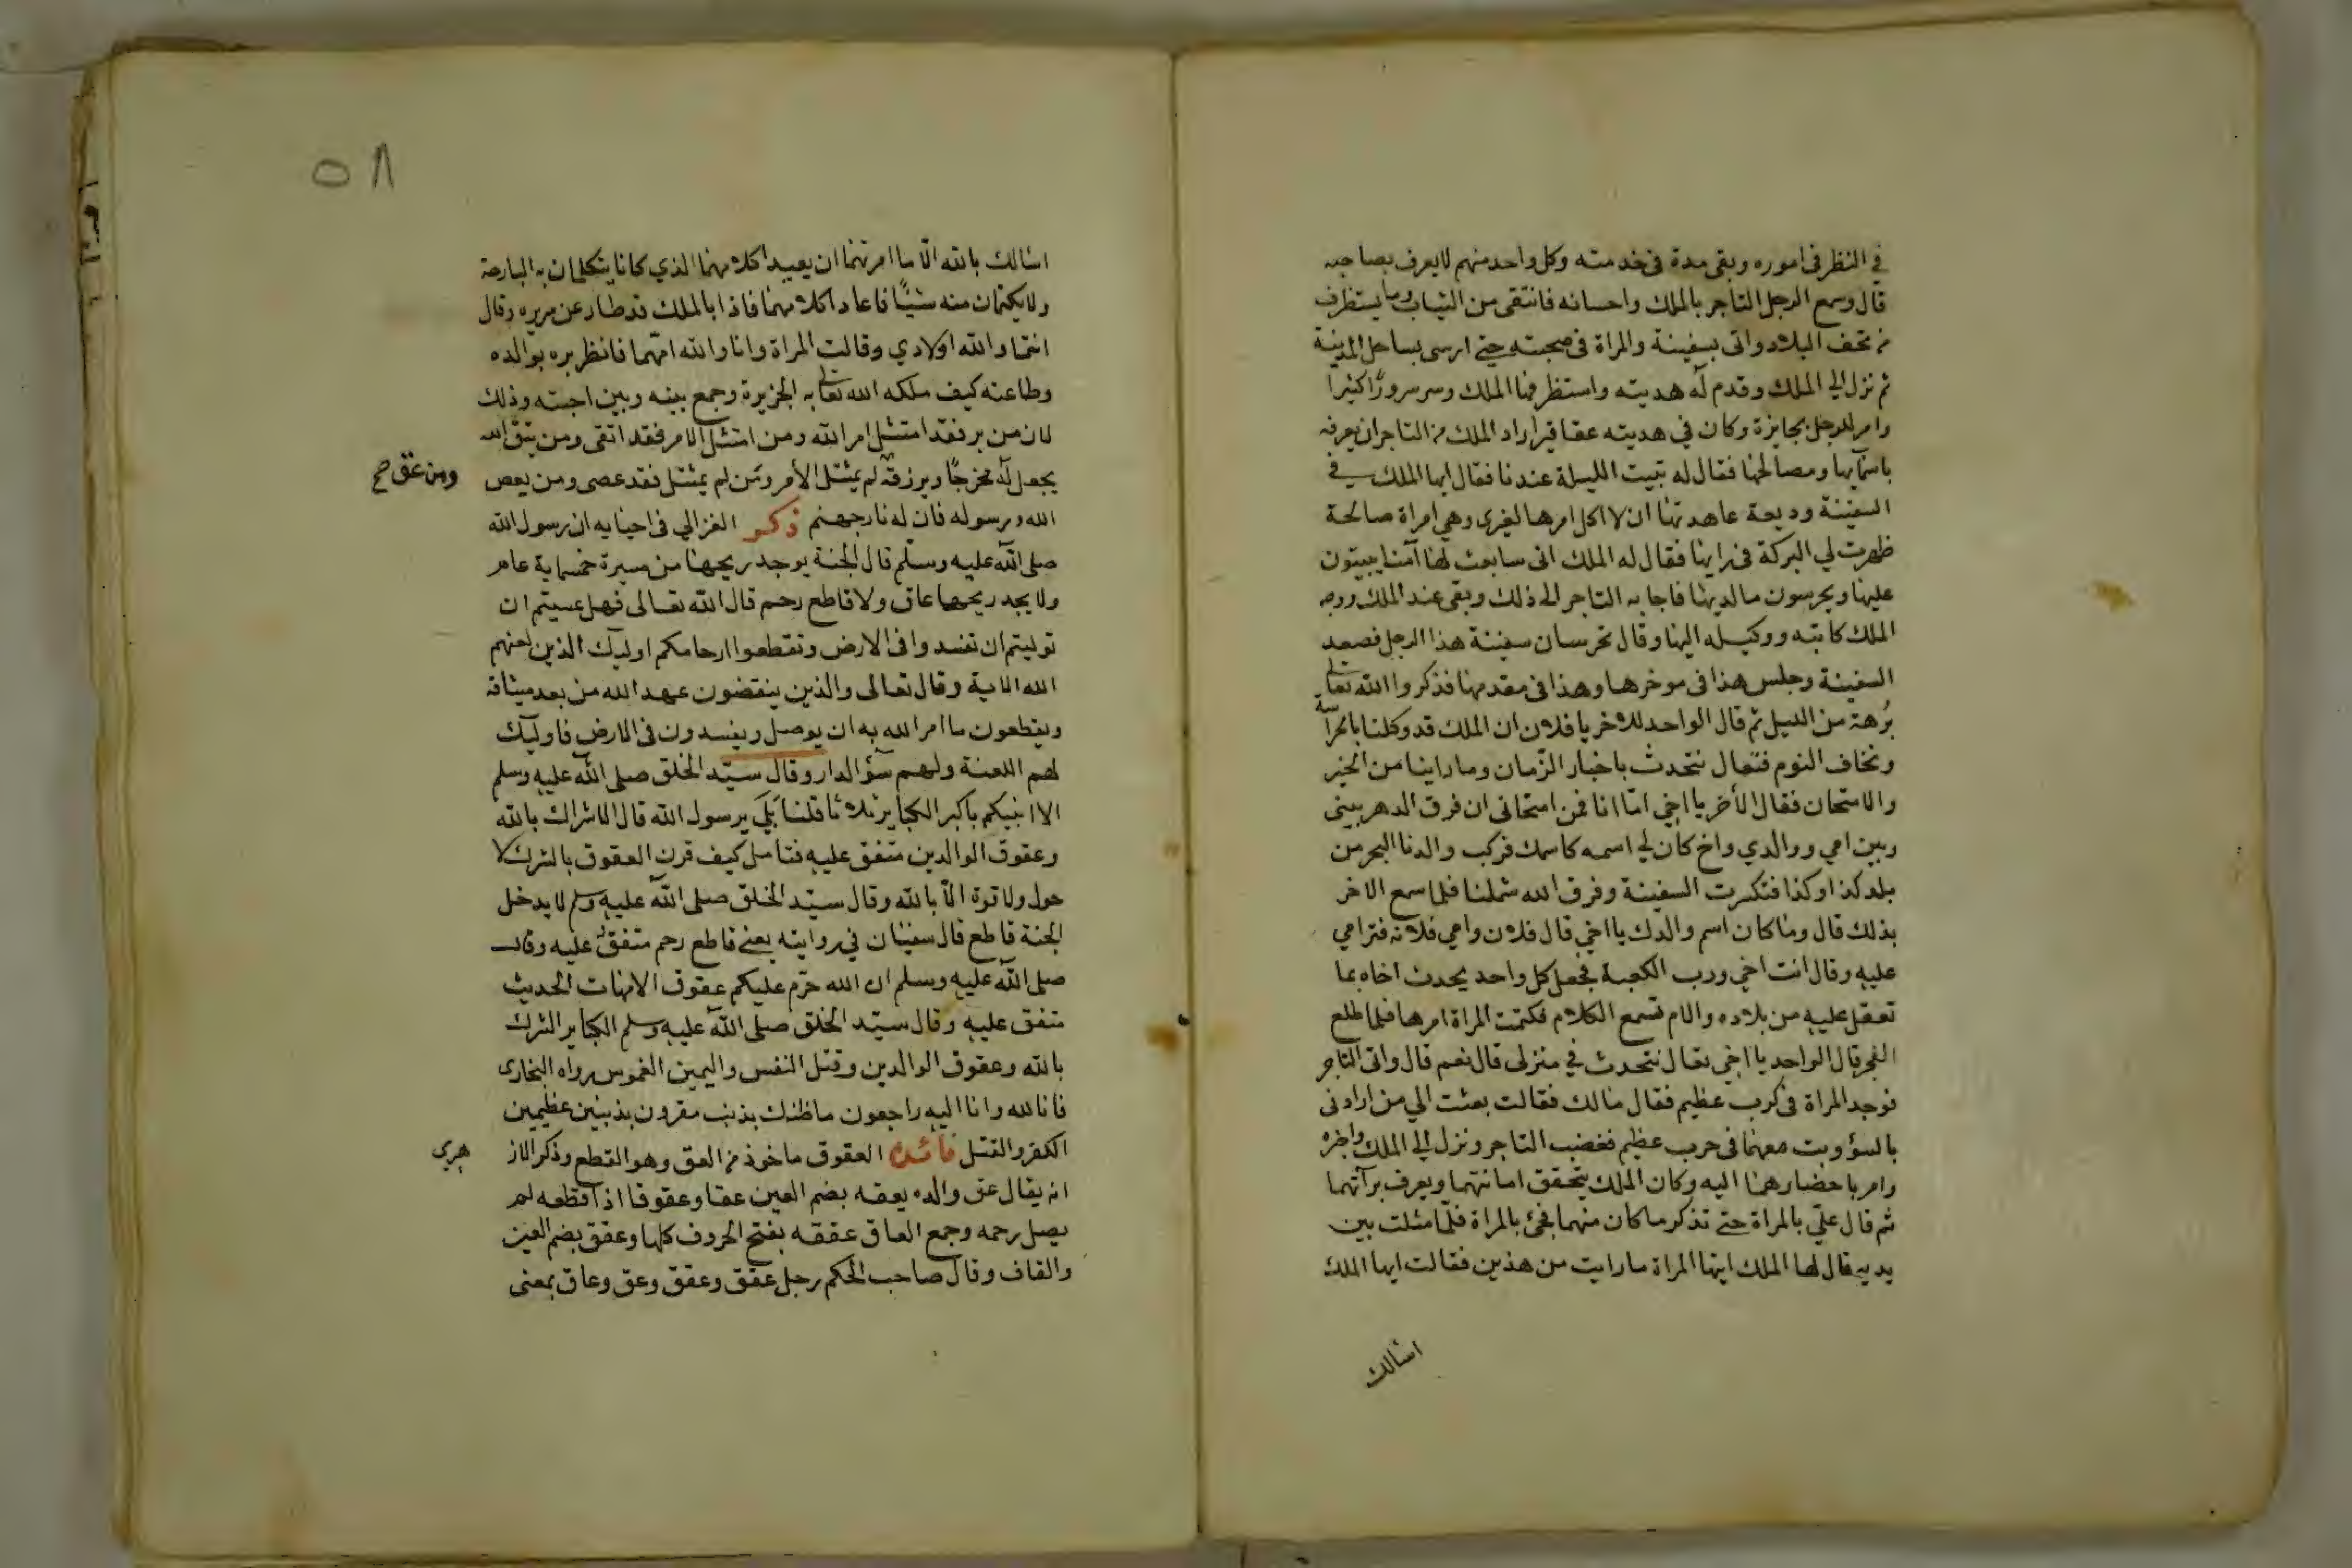 في النظر في اموره وبقي مدة في خدمته وكل واحد منهم لا يعرف بصاحبه
قال وسمع الرجل التاجر بالملك واحسانه فانتقى من الثياب وما يستظرف
من تحف البلاد واتى بسفينة والمراة في صحبته حتى ارسى بساحل المدينة
ثم نزل الى الملك وقدم له هديته واستظرفها الملك وسر سرورًا كثيرا
وامر للرجل بجايزة وكان في هديته عقاقير اراد الملك من التاجر ان يعرفه
باسمايها ومصالحها فقال له تبيت الليلة عندنا فقال ايها الملك في
السفينة وديعة عاهدتها ان لا اكل امرها لغيري وهي امراة صالحة
ظهرت لي البركة في رايها فقال له الملك اني سابعث لها آمنا يبيتون
عليها ويحرسون ما لديها فاجابه التاجر الى ذلك وبقى عند الملك ووجه
الملك كاتبه ووكيله اليها وقال تحرسان سفينة هذا الرجل فصعد
السفينة وجلس هذا في موخرها وهذا في مقدمها فذكروا الله تعالى
بُرهة من الليل ثم قال الواحد للاخر يا فلان ان الملك قد وكلنا بالحراسة
ونخاف النوم فتعال نتحدث باخبار الزّمان وما راينا من الخير
والامتحان فقال الأخر يا اخي امّا انا فمن امتحاني ان فرق الدهر بيني
وبين امي ووالدي واخ كان لي اسمه كاسمك فركب والدنا البحر من
بلد كذا وكذا فتكسرت السفينة وفرق الله شملنا فلما سمع الاخر
بذلك قال وما كان اسم والدك يا اخي قال فلان وامي فلانه فترامي
عليه وقال انت اخي ورب الكعبة فجعل كل واحد يحدث اخاه بما
تعقل عليه من بلاده والام تسمع الكلام فكتمت المراة امرها فلما طلع
الفجر قال الواحد يا اخي تعال نتحدث في منزلي قال نعم قال واتى التاجر
فوجد المراة في كرب عظيم فقال مالك فقالت بعثت الي من ارادني
بالسؤ وبت معهما في حرب عظيم فغضب التاجر ونزل الى الملك واخبره
وامر باحضارهما اليه وكان الملك يتحقق امانتهما ويعرف برآتهما
ثم قال عليّ بالمراة حتى تذكر ما كان منهما فجئ بالمراة فلمّا مثلت بين
يديه قال لها الملك ايتها المراة ما رايت من هذين فقالت ايها الملك
اسالك
٥٨
اسالك بالله الّا ما امرتهما ان يعيدا كلامهما الذي كانا يتكلمان به البارحة
ولا يكتمان منه شيئًا فاعادا كلامهما فاذا بالملك قد طار عن سريره وقال
انتما والله اولادي وقالت المراة وانا والله امّهما فانظر بره بوالده
وطاعته كيف ملكه الله تعالى به الجزيرة وجمع بينه وبين احبته وذلك
لان من بر فقد امتثل امر الله ومن امتثل الامر فقد اتقى ومن يتق الله
يجعل له مخرجًا ويرزقه لم يمتثل الأمر ومَن لم يمتثل فقد عصى ومن يعص
ومن عق صح
الله ورسوله فان له نار جهنم ذكر الغزالي في احيايه ان رسول الله
صلى الله عليه وسلّم قال الجنة يوجد ريحها من مسيرة خمسماية عام
ولا يجد ريحها عاق ولا قاطع رحم قال الله تعالى فهل عسيتم ان
توليتم ان تفسدوا في الارض وتقطعوا ارحامكم اوليك الذين لعنهم
الله الاية وقال تعالى والذين ينقضون عهد الله من بعد ميثاقه
ويقطعون ما امر الله به ان يوصل ويفسدون في الارض فاوليك
لهم اللعنة ولهم سؤ الدار وقال سيّد الخلق صلى الله عليه وسلم
الا انبيكم باكبر الكبايرثلاثا قلنا بَلَى يرسول الله قال الاشراك بالله
وعقوق الوالدين متفق عليه فتامل كيف قرن العقوق بالشرك لا
حول ولا قوة الّا بالله وقال سيّد الخلق صلى الله عليه وسلم لا يدخل
الجنة قاطع قال سفيان في روايته يعني قاطع رحم متفق عليه وقال
صلى الله عليه وسلم ان الله حرّم عليكم عقوق الامهات الحديث
متفق عليه وقال سيّد الخلق صلى الله عليه وسلم الكباير الشرك
بالله وعقوق الوالدين وقتل النفس واليمين الغموس رواه البخاري
فانا لله وانا اليه راجعون ما ظنك بذنب مقرون بذنبين عظيمين
الكفر والقتل فائدة العقوق ماخوذ من العق وهو القطع وذكر الاز
هري
انه يقال عق والده يعقه بضم العين عقا وعقوقا اذا قطعه لم
يصل رحمه وجمع العاق عققه بفتح الحروف كلها وعقق بضم العين
والقاف وقال صاحب الحكم رجل عقق وعقق وعق وعاق بمعنى